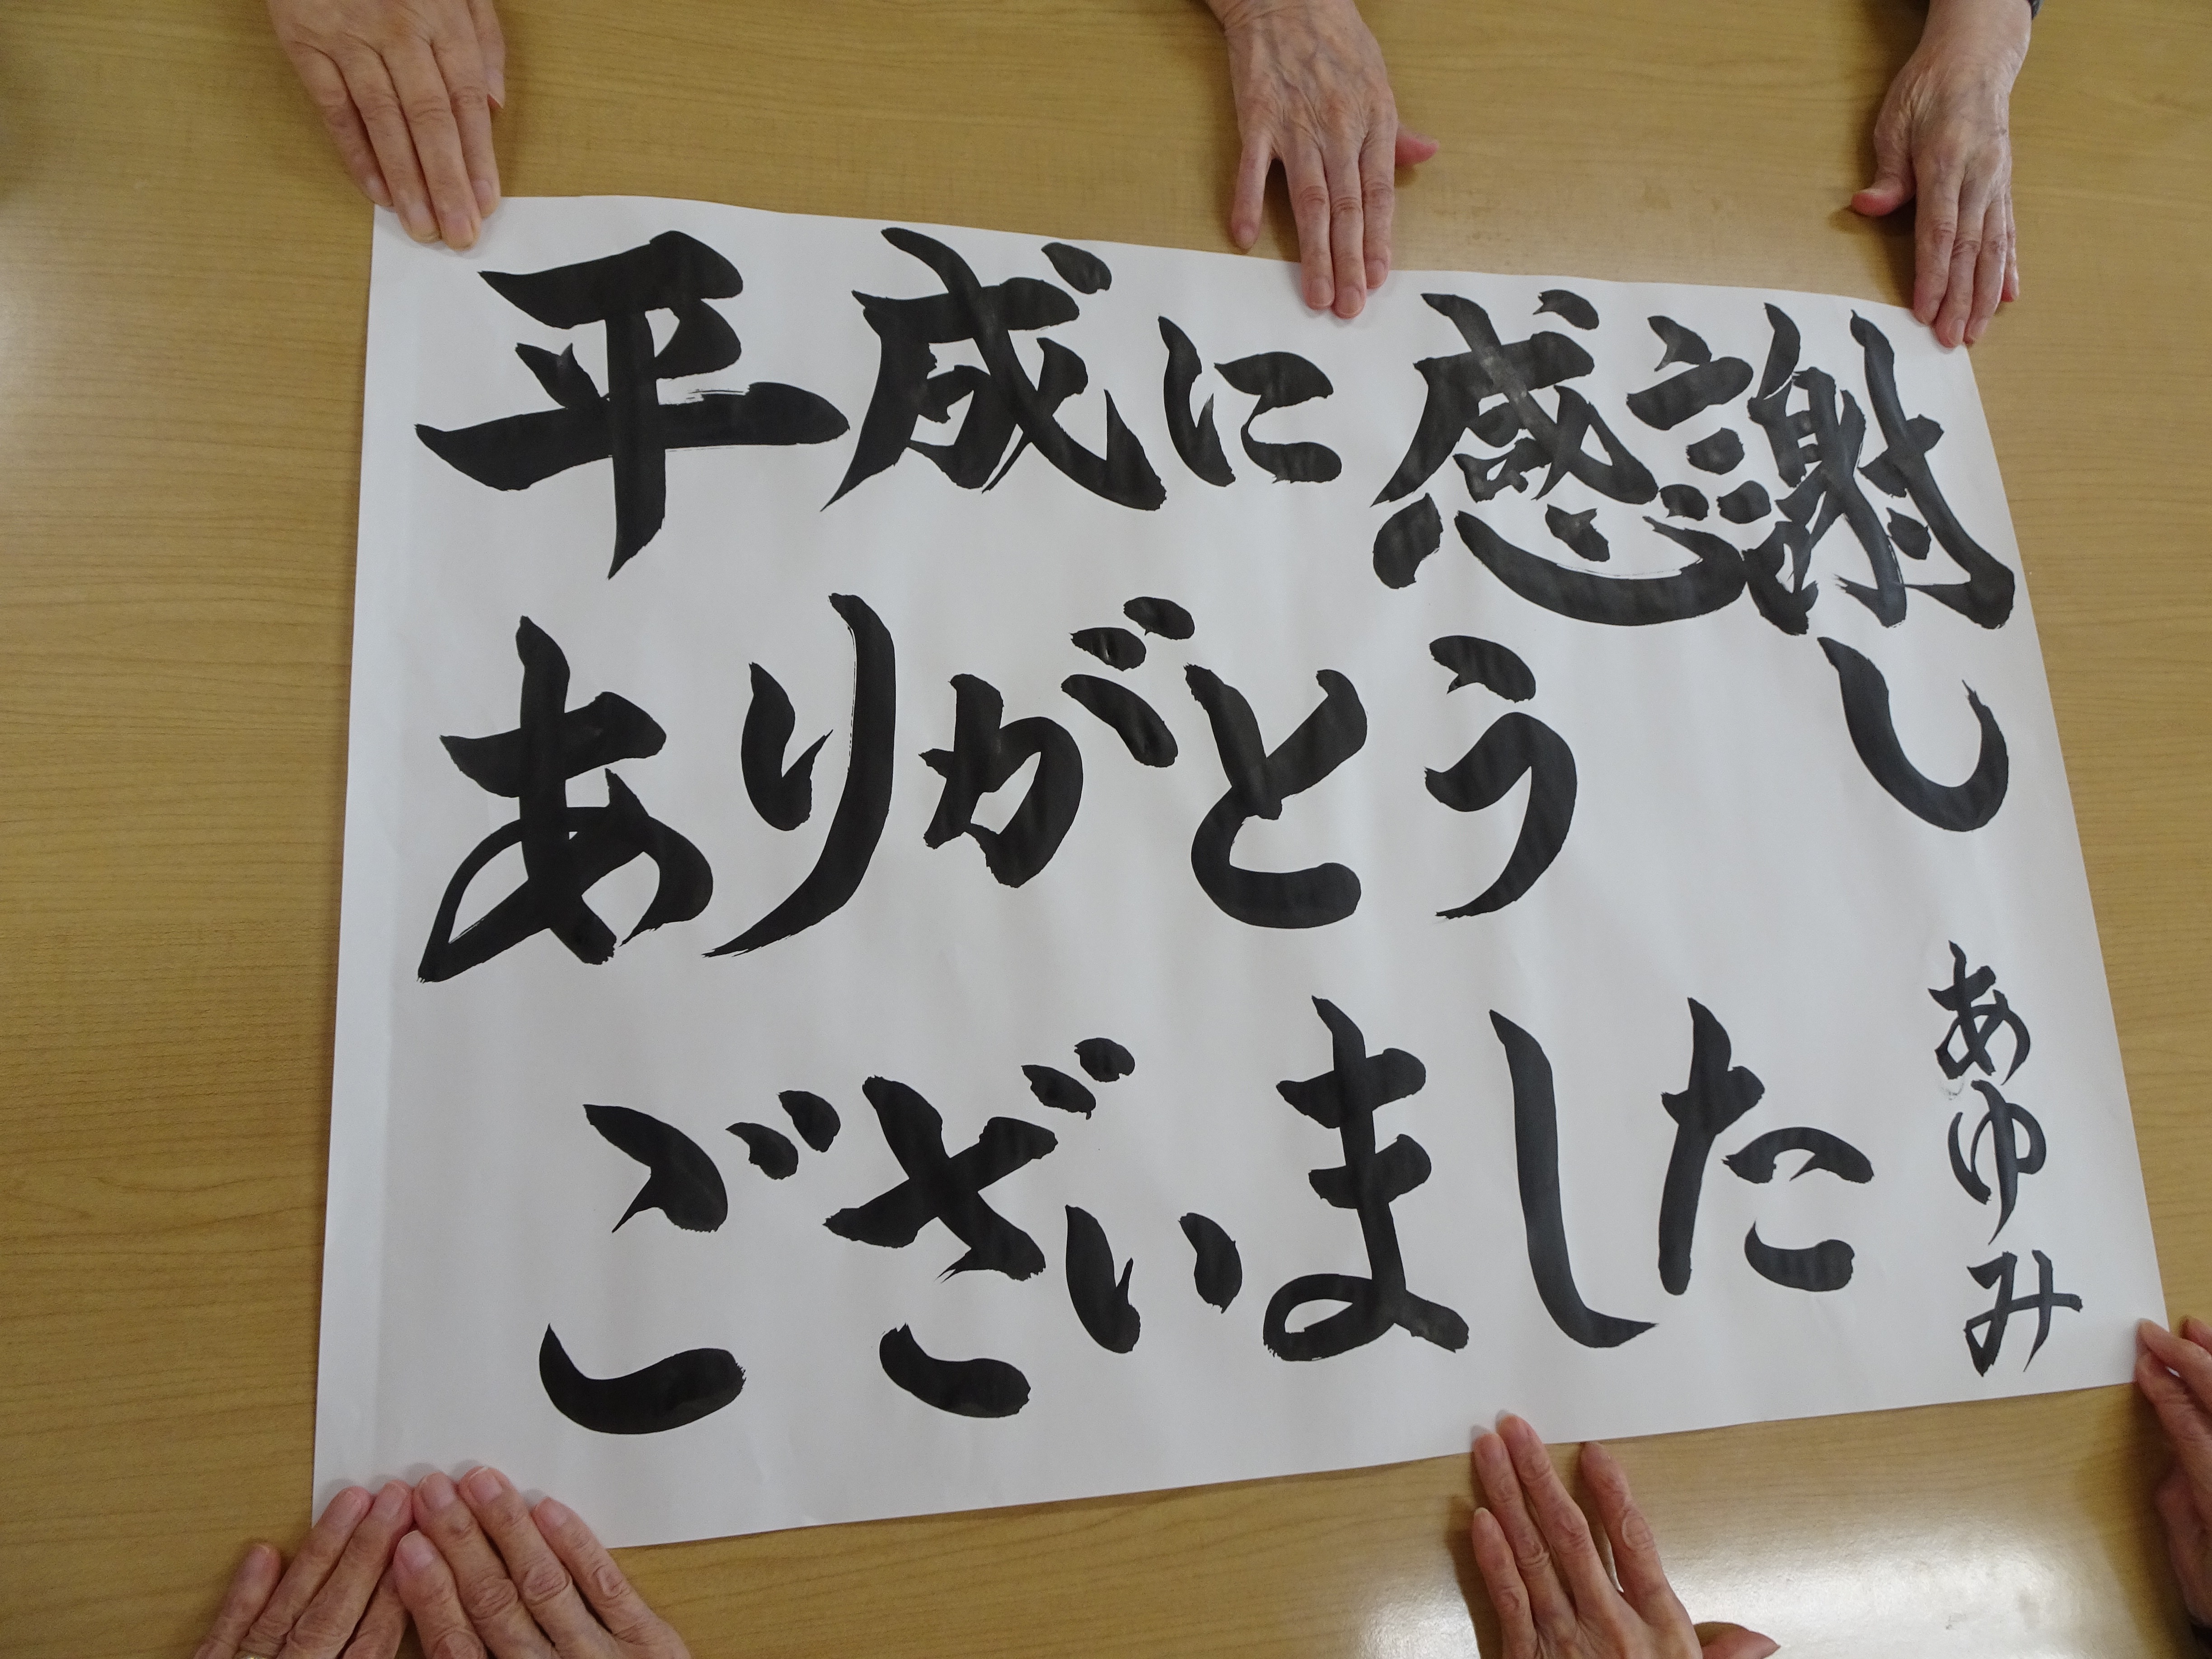 平成に感謝し
ありがとう
ございました
あゆみ